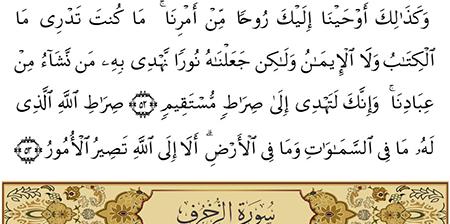 وَكَذَٰلِكَ أَوْحَيْنَآ إِلَيْكَ رُوحًا مِّنْ أَمْرِنَا ۚ مَا كُنتَ تَدْرِى مَا
ٱلْكِتَٰبُ وَلَا ٱلْإِيمَٰنُ وَلَٰكِن جَعَلْنَٰهُ نُورًا نَّهْدِى بِهِۦ مَن نَّشَآءُ مِنْ
عِبَادِنَا ۚ وَإِنَّكَ لَتَهْدِىٓ إِلَىٰ صِرَٰطٍ مُّسْتَقِيمٍ ﴿٥٢﴾ صِرَٰطِ ٱللَّهِ ٱلَّذِى
لَهُۥ مَا فِى ٱلسَّمَٰوَٰتِ وَمَا فِى ٱلْأَرْضِ ۗ أَلَآ إِلَى ٱللَّهِ تَصِيرُ ٱلْأُمُورُ ﴿٥٣﴾
سُورَةُ الزُّخْرُفِ